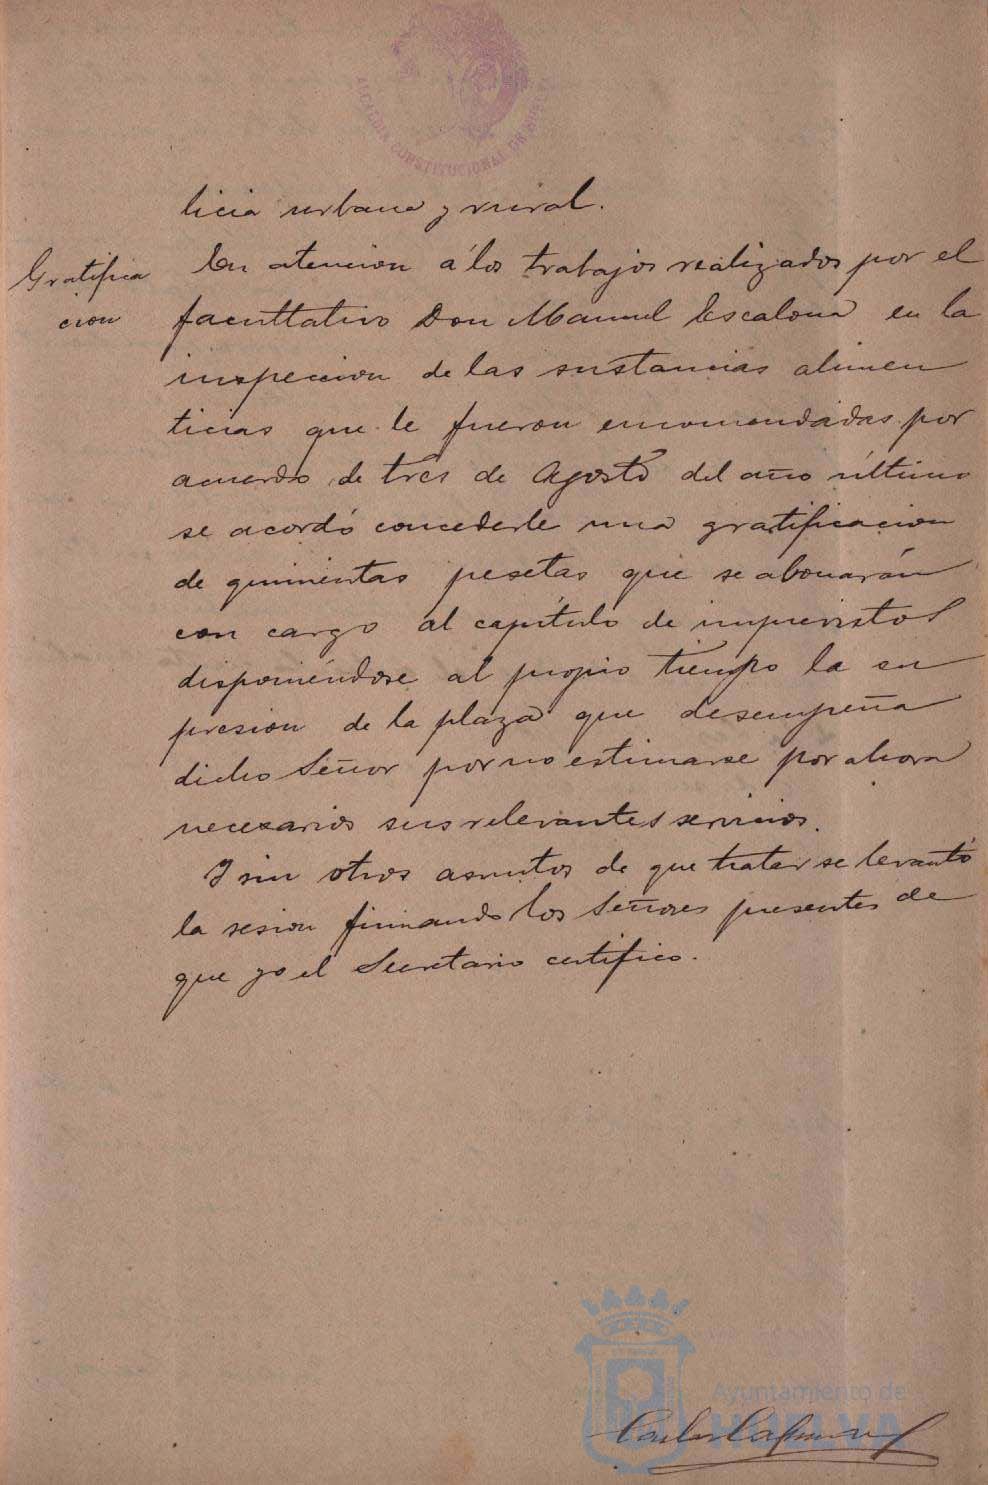 ALCALDIA CONSTITUCIONAL DE HUELVA
licia urbana y rural.
Gratifica
cion
En atencion á los trabajos realizados por el
facultativo Don Manuel Escalona en la
inspeccion de las sustancias alimen
ticias que le fueron encomendadas por
acuerdo de tres de Agosto del año último
se acordó concederle una gratificacion
de quinientas pesetas que se abonarán
con cargo al capítulo de imprevistos
disponiéndose al propio tiempo la su
presion de la plaza que desempeña
dicho Señor por no estimarse por ahora
necesarios sus relevantes servicios.
Y sin otros asuntos de que tratar se levantó
la sesion firmando los Señores presentes de
que yo el Secretario certifico.
Ayuntamiento de
HUELVA